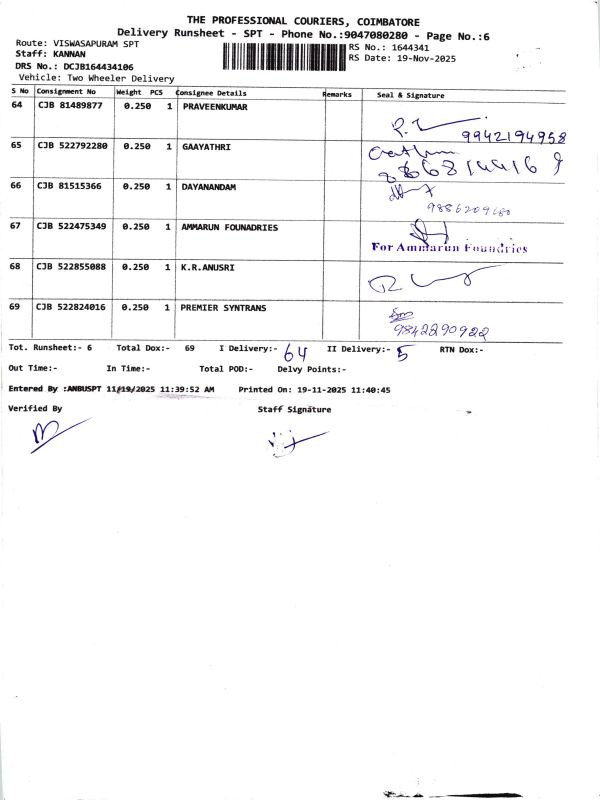 THE PROFESSIONAL COURIERS, COIMBATORE
Delivery Runsheet - SPT - Phone No.:9047080280 - Page No.:6
Route: VISWASAPURAM SPT
RS No.: 1644341
Staff: KANNAN
RS Date: 19-Nov-2025
DRS No.: DCJB164434106
Vehicle: Two Wheeler Delivery
S No Consignment No Weight PCS Consignee Details Remarks Seal & Signature
64 CJB 81489877 0.250 1 PRAVEENKUMAR
9942194958
65 CJB 522792280 0.250 1 GAAYATHRI
66 CJB 81515366 0.250 1 DAYANANDAM
67 CJB 522475349 0.250 1 AMMARUN FOUNADRIES
For Ammarun Foundries
68 CJB 522855088 0.250 1 K.R.ANUSRI
69 CJB 522824016 0.250 1 PREMIER SYNTRANS
9842290922
Tot. Runsheet:- 6 Total Dox:- 69 I Delivery:- 64 II Delivery:- 5 RTN Dox:-
Out Time:- In Time:- Total POD:- Delvy Points:-
Entered By :ANBUSPT 11/19/2025 11:39:52 AM Printed On: 19-11-2025 11:40:45
Verified By Staff Signature